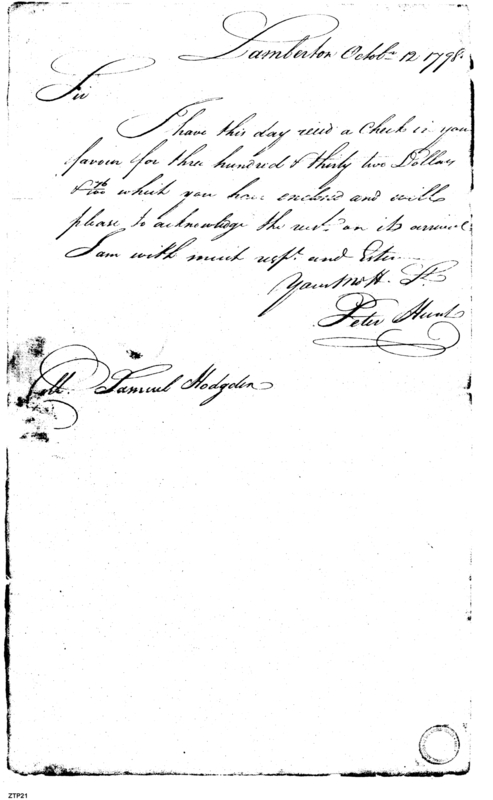 Lamberton Octobr 12 1798.
Sir
I have this day recd a Check in your
favour for three hundred & thirty two Dollars
& 76/100 which you have enclosed and will
please to acknowledge the on its arrival
I am with much respt. and Esteem
Your H. St.
Peter Hunt
Coll. Samuel Hodgden
ZTP21